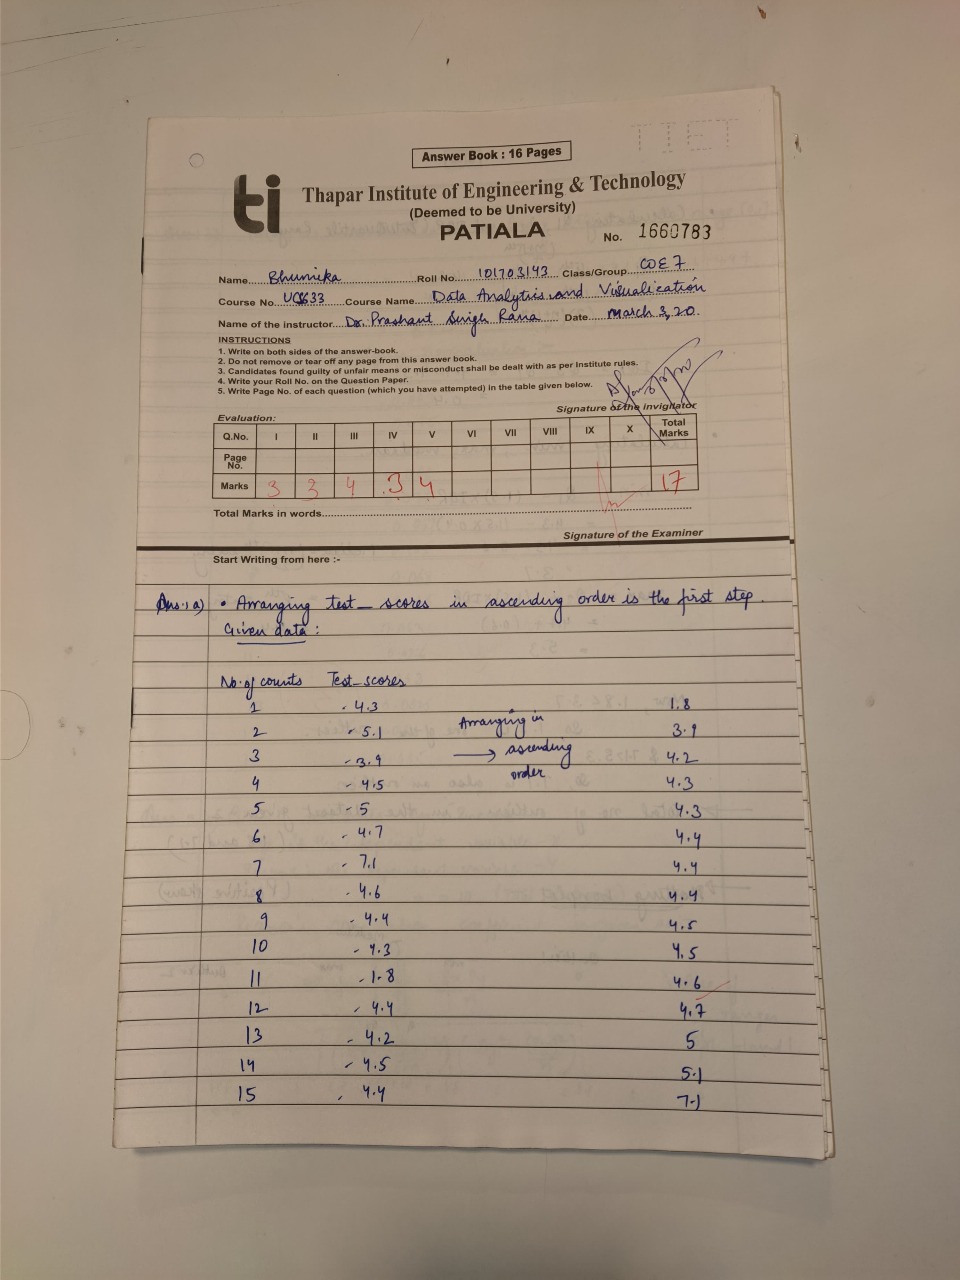 TIET
Answer Book : 16 Pages
ti Thapar Institute of Engineering & Technology
(Deemed to be University)
PATIALA
No. 1660783
Name.....Bhumika.....Roll No.....101703143 Class/Group.....COE 7
Course No. UCS633 Course Name....Data Analytics and Visualization
Name of the instructor....Dr. Prashant Singh Rana Date.....March 3, 20.
INSTRUCTIONS
1. Write on both sides of the answer-book.
2. Do not remove or tear off any page from this answer book.
3. Candidates found guilty of unfair means or misconduct shall be dealt with as per Institute rules.
4. Write your Roll No. on the Question Paper.
5. Write Page No. of each question (which you have attempted) in the table given below.
Signature of the invigilator
Evaluation:
Q.No. I II III IV V VI VII VIII IX X Total Marks
Page No.
Marks 3 3 4 3 4 17
Total Marks in words
Signature of the Examiner
Start Writing from here :-
Ans.1 a) • Arranging test_scores in ascending order is the first step.
Given data :
No. of counts Test_scores
1 - 4.3 1.8
2 - 5.1 Arranging in 3.9
3 - 3.9 → ascending 4.2
4 - 4.5 order 4.3
5 - 5 4.3
6 - 4.7 4.4
7 - 7.1 4.4
8 - 4.6 4.4
9 - 4.4 4.5
10 - 4.3 4.5
11 - 1.8 4.6
12 - 4.4 4.7
13 - 4.2 5
14 - 4.5 5.1
15 - 4.4 7.1